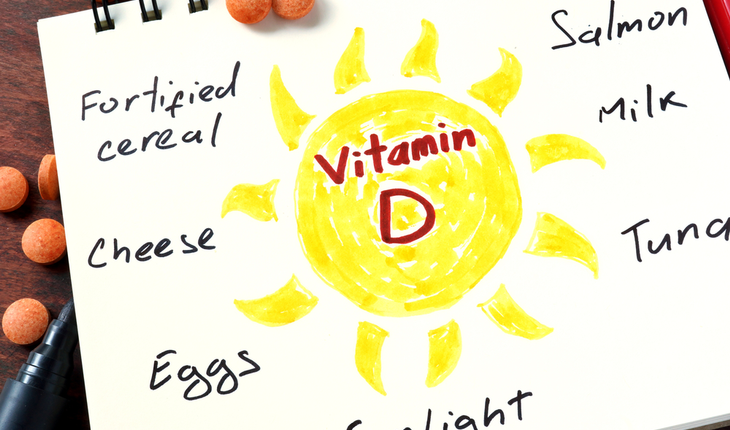 Salmon
Fortified
cereal
Milk
Vitamin
D
Cheese
Tuna
Eggs
Sunlight